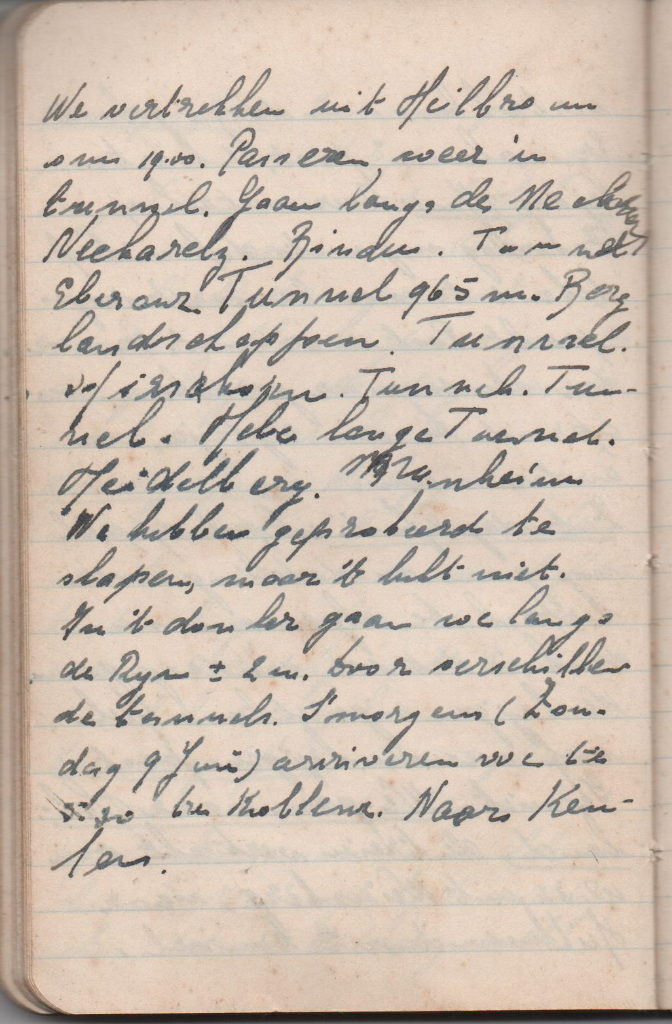 We vertrekken uit Heilbronn
om 19.00. Passeren weer 'n
tunnel. Gaan langs de Neckar
Neckarelz. Binau. Tunnel
Eberbach Tunnel 965 m. Berg
landschappen. Tunnel.
Hirschhorn. Tunnel. Tun-
nel. Hele lange Tunnel.
Heidelberg. Manheim
We hebben geprobeerd te
slapen, maar 't lukt niet.
In 't donker gaan we langs
de Ryn ± 2 m. door verschillen
de tunnels. S'morgens (Zon-
dag 9 Juni) arriveren we te
5.30 te Koblenz. Naar Keu-
len.